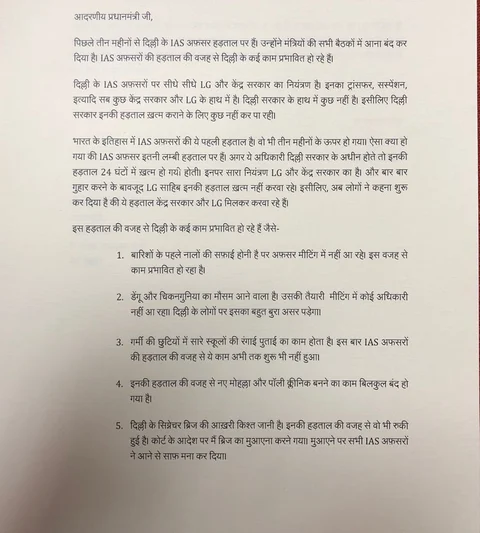 आदरणीय प्रधानमंत्री जी,
पिछले तीन महीनों से दिल्ली के IAS अफ़सर हड़ताल पर हैं। उन्होंने मंत्रियों की सभी बैठकों में आना बंद कर
दिया है। IAS अफसरों की हड़ताल की वजह से दिल्ली के कई काम प्रभावित हो रहे हैं।
दिल्ली के IAS अफसरों पर सीधे सीधे LG और केंद्र सरकार का नियंत्रण है। इनका ट्रांसफर, सस्पेंशन,
इत्यादि सब कुछ केंद्र सरकार और LG के हाथ में है। दिल्ली सरकार के हाथ में कुछ नहीं है। इसीलिए दिल्ली
सरकार इनकी हड़ताल ख़त्म कराने के लिए कुछ नहीं कर पा रही।
भारत के इतिहास में IAS अफसरों की ये पहली हड़ताल है। वो भी तीन महीनों के ऊपर हो गया। ऐसा क्या हो
गया की IAS अफ़सर इतनी लम्बी हड़ताल पर हैं। अगर ये अधिकारी दिल्ली सरकार के अधीन होते तो इनकी
हड़ताल 24 घंटों में ख़त्म हो गयी होती। इनपर सारा नियंत्रण LG और केंद्र सरकार का है। और बार बार
गुहार करने के बावजूद LG साहिब इनकी हड़ताल ख़त्म नहीं करवा रहे। इसीलिए, अब लोगों ने कहना शुरू
कर दिया है की ये हड़ताल केंद्र सरकार और LG मिलकर करवा रहे हैं।
इस हड़ताल की वजह से दिल्ली के कई काम प्रभावित हो रहे हैं जैसे-
1. बारिशों के पहले नालों की सफ़ाई होनी है पर अफसर मीटिंग में नहीं आ रहे। इस वजह से
काम प्रभावित हो रहा है।
2. डेंगू और चिकनगुनिया का मौसम आने वाला है। उसकी तैयारी मीटिंग में कोई अधिकारी
नहीं आ रहा। दिल्ली के लोगों पर इसका बहुत बुरा असर पड़ेगा।
3. गर्मी की छुटियों में सारे स्कूलों की रंगाई पुताई का काम होता है। इस बार IAS अफसरों
की हड़ताल की वजह से ये काम अभी तक शुरू भी नहीं हुआ।
4. इनकी हड़ताल की वजह से नए मोहल्ला और पॉली क्लीनिक बनने का काम बिलकुल बंद हो
गया है।
5. दिल्ली के सिग्नेचर ब्रिज की आख़री किश्त जानी है। इनकी हड़ताल की वजह से वो भी रुकी
हुई है। कोर्ट के आदेश पर मैं ब्रिज का मुआएना करने गया। मुआएने पर सभी IAS अफ़सरों
ने आने से साफ़ मना कर दिया।